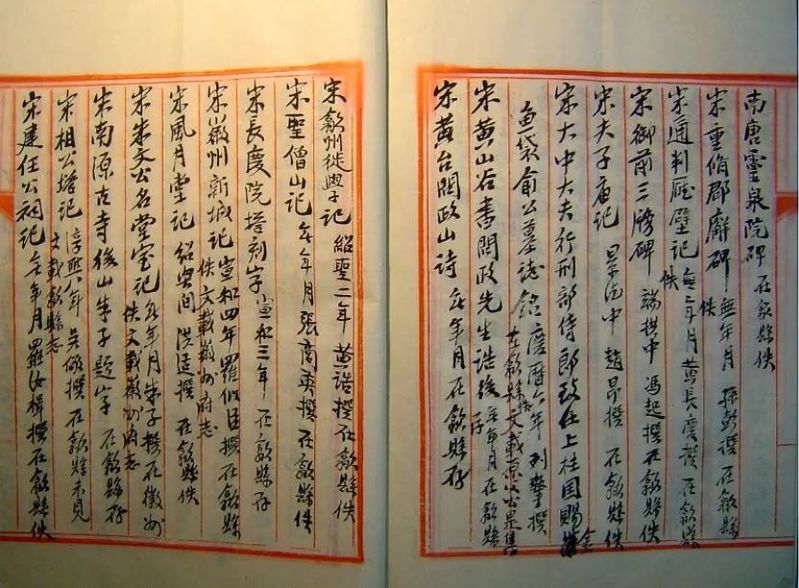 南唐靈泉院碑 在歙縣佚
宋重脩郡廨碑 無年月 孫彭撰 在歙縣佚
宋通判廳壁記 無年月 黃長慶撰 在歙縣佚
宋御前三牓碑 端拱中 馮起撰 在歙縣佚
宋夫子庙記 景德中 趙昂撰 在歙縣佚
宋大中大夫行刑部侍郎致仕上柱国賜金
魚袋俞公墓誌銘 慶曆六年 撰 在歙縣佚 文載
宋黃山谷書問政先生誥後 無年月 在歙縣存
宋黃台問政山诗 無年月 在歙縣存
宋歙州徙學記 紹聖二年 黃誥撰 在歙縣佚
宋聖僧山記 無年月 張商英撰 在歙縣佚
宋長慶院塔刻字 宣和三年 在歙縣存
宋徽州新城記 宣和四年 羅似臣撰 在歙縣佚 文載徽州府志
宋風月堂記 紹興间 洪适撰 在歙縣佚
宋朱文公名堂室記 無年月 朱子撰 在徽州佚 文載徽州府志
宋南源古寺後山朱子題字 在歙縣存
宋相公塔記 淳熙八年 吳儆撰 在歙縣未見 文載歙縣志
宋建任公祠記 無年月 羅汝楫撰 在歙縣佚